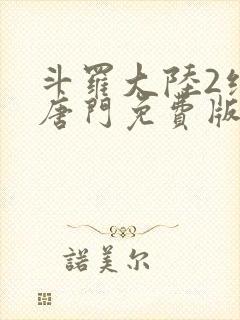 斗羅大陸2
唐門免費版
諾美尔